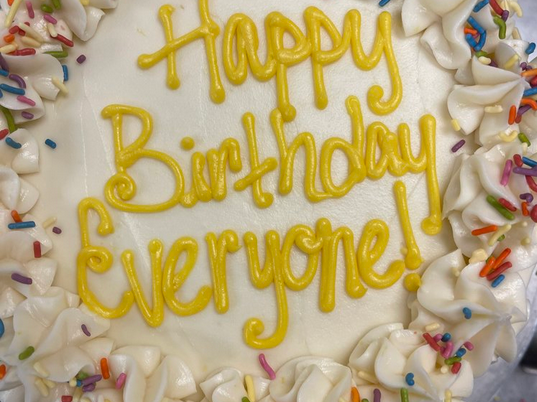 Happy
Birthday
Everyone!